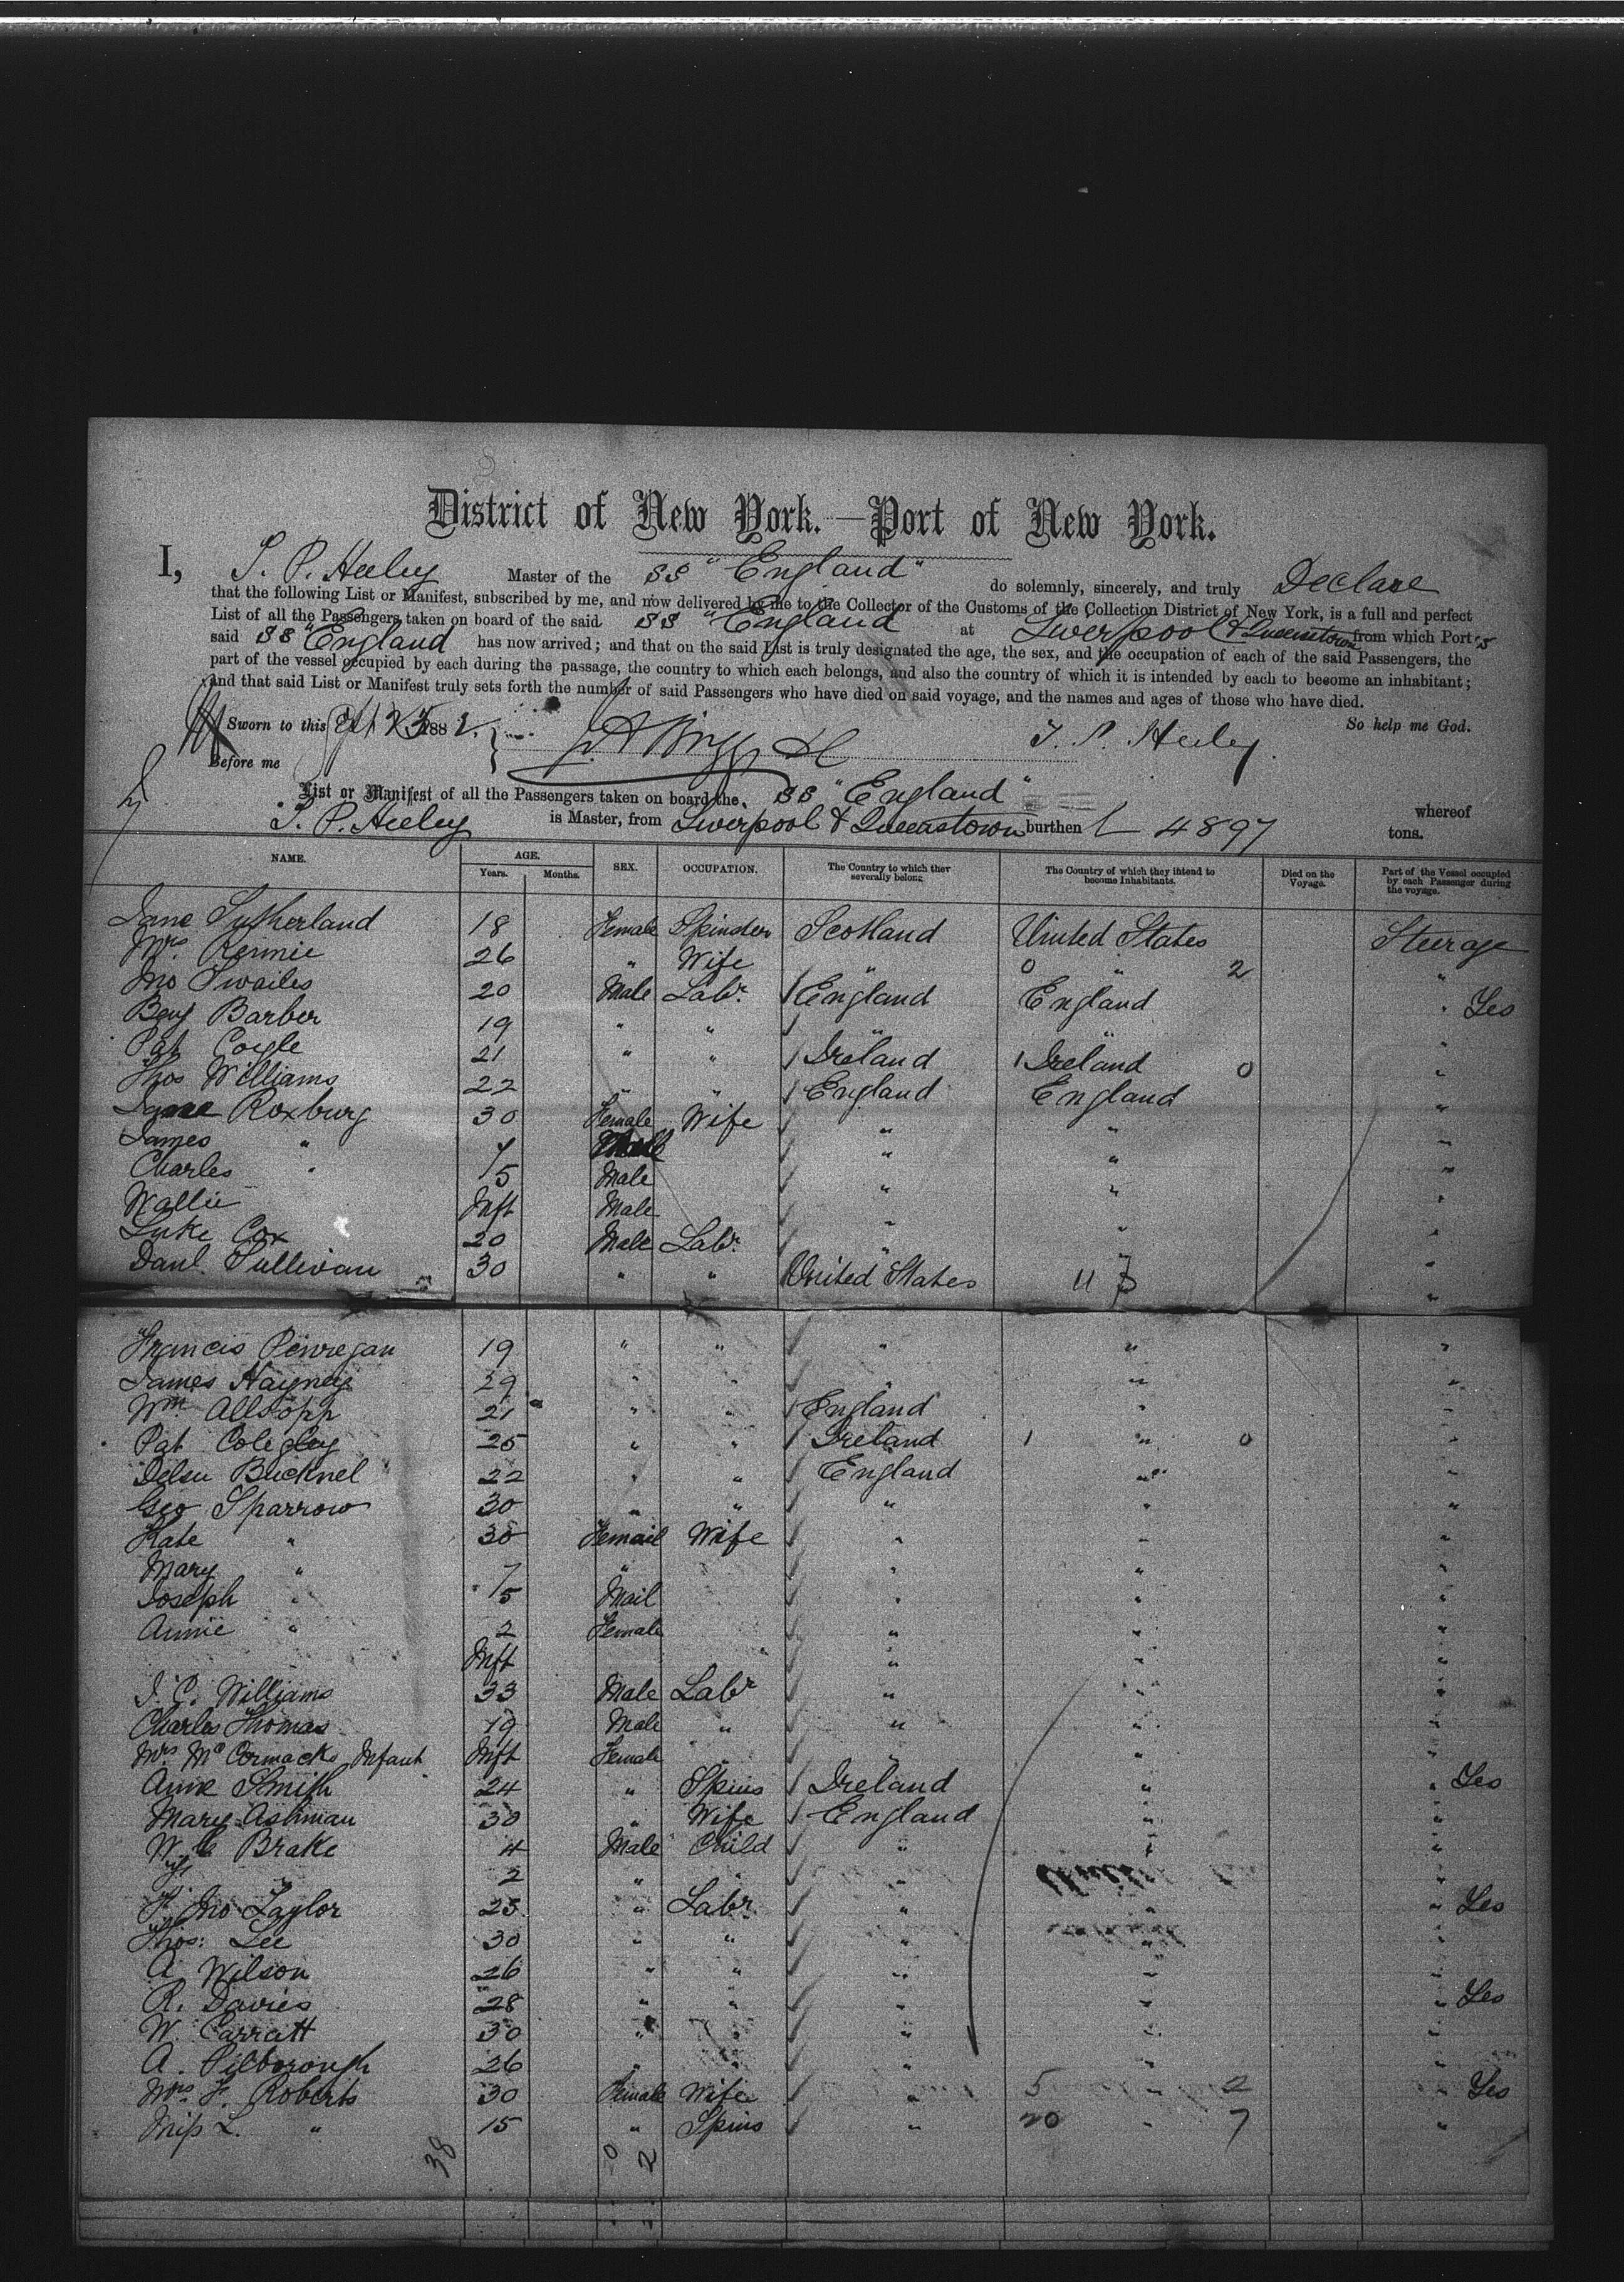 District of New York.—Port of New York.
I, T. P. Heeley Master of the SS "England" do solemnly, sincerely, and truly Declare
that the following List or Manifest, subscribed by me, and now delivered by me to the Collector of the Customs of the Collection District of New York, is a full and perfect
List of all the Passengers taken on board of the said SS "England at Liverpool & Queenstown from which Port s
said SS "England has now arrived; and that on the said List is truly designated the age, the sex, and the occupation of each of the said Passengers, the
part of the vessel occupied by each during the passage, the country to which each belongs, and also the country of which it is intended by each to become an inhabitant;
and that said List or Manifest truly sets forth the number of said Passengers who have died on said voyage, and the names and ages of those who have died.
Sworn to this 25 1882. T. P. Heeley So help me God.
Before me
List or Manifest of all the Passengers taken on board the SS "England" whereof
T. P. Heeley is Master, from Liverpool & Queenstown burthen 4897 tons.
NAME. AGE. Years. Months. SEX. OCCUPATION. The Country to which they severally belong The Country of which they intend to become Inhabitants. Died on the Voyage. Part of the Vessel occupied by each Passenger during the voyage.
Jane Sutherland 18 Female Spinster Scotland United States Steerage
Mrs. Rennie 26 " Wife " 0 " 2 "
Jno Swailes 20 Male Labr. England England " Yes
Benj Barber 19 " " " "
Pat Coyle 21 " " Ireland 1 Ireland 0 "
Thos Williams 22 " " England England "
Jane Roxburg 30 Female Wife " " "
James " 7 " " "
Charles " 5 Male " " "
Wallie Inft Male " " "
Luke Cox 20 Male Labr. " " "
Danl. Sullivan 30 " " United States U S "
Francis Penregan 19 " " " " "
James Hayney 29 " " " " "
Wm. Allsopp 21 " " England " "
Pat 25 " " Ireland 1 " 0 "
Bucknel 22 " " England " "
Geo Sparrow 30 " " " " "
Kate " 30 Femail Wife " " "
Mary " 7 " " " "
Joseph " 5 Mail " " "
Annie " 2 Female " " "
Inft " " "
J. C. Williams 33 Male Labr " " "
Charles Thomas 19 Male " " " "
Mrs McCormacks Infant Inft Female " " "
Anne Smith 24 " Spins Ireland " " Yes
Mary Ashman 30 " Wife England " "
W Brake 4 Male Child " " "
" 2 " " " " "
Jno Taylor 23 " Labr. " " " Yes
Thos: Lee 30 " " " " "
A Wilson 26 " " " " "
R. Davies 28 " " " " " Yes
W. Carratt 30 " " " " "
A. Pilborough 26 " " " " "
Mrs F. Roberts 30 Female Wife " 5 " 2 " Yes
Miss L. " 15 " Spins " 20 " 7 "
38 0 2